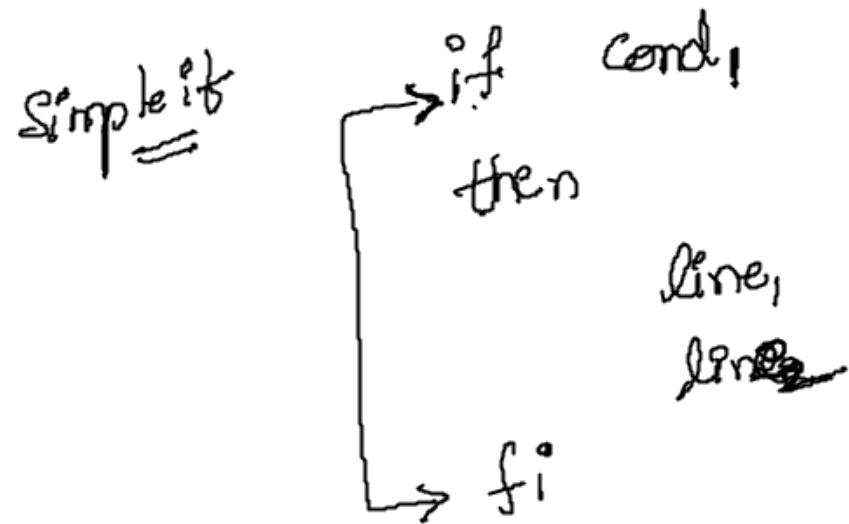 Simple if
if cond1
then
line1
line2
fi